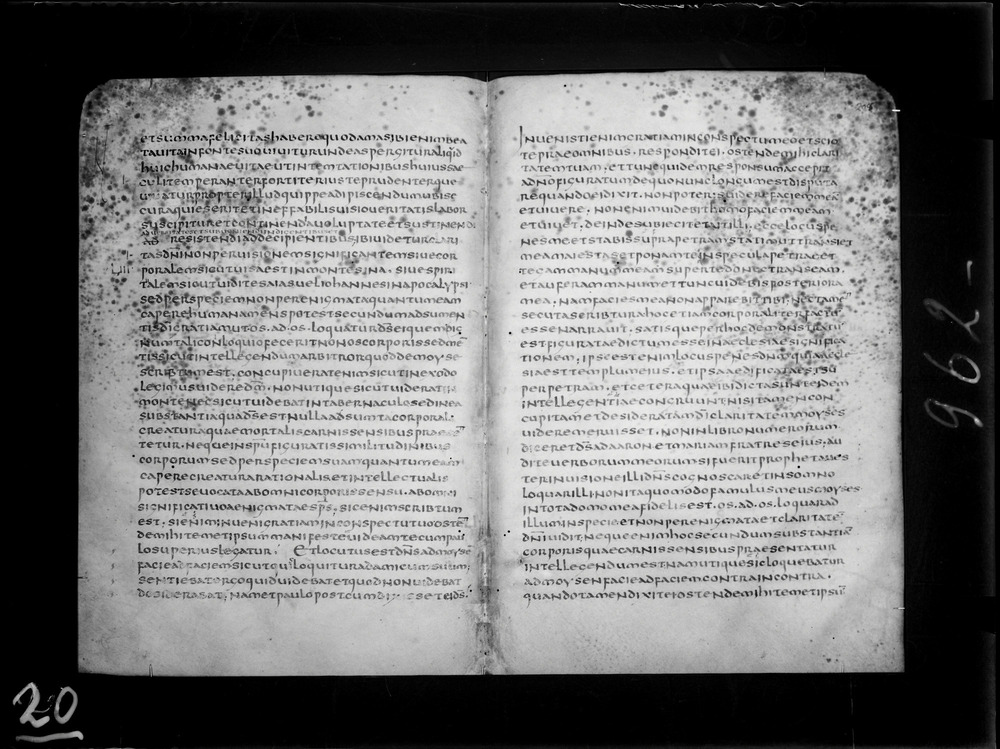 etsummafelicitashaberoquodamasibienimbea
tauitainfontesuouiuiturundeaspergituraliqid
huichumanaeuitaeutintemtationibushuiussae
culitemperanterfortiteriusteprudenterque
uiuaturpropterilludquippeadipiscendumubisec
curaquieseritetineffabilisuisioueritatislabor
suscipituretcontinendauoluptateetsustinendis
resistendiaddecipientibusibiuideturclari
tasdn̄inonperuisionemsignificantemsiuecor
poralemsicutuisaestinmontesina. siuespiri
talemsicutuiditesaiasueliohannesinapocalypsi
sedperspeciemnonperenigmataquantumeam
caperehumanamenspotestsecundumadsumen
tisdīgratiamutos.ad.os.loquaturdsēiquemdig
numtaliconloquiofeceritnonoscorporissedme
tissicutintellegendumarbitrorquoddemoyse
scribtumest. concupiueratenimsicutinexodo
legimusuideredm̄. nonutiquesicutuiderat
montenecsicutuidebatintabernaculosedinea
substantiaquadsēstnullaadsumtacorporali
creaturaquaemortaliscarnissensibuspraesen
tetur. nequeinspūfiguratissimilitudinibus
corporumsedperspeciemsuamquantumeam
caperecreaturarationalisetintellectualis
potestseuocataabomnicorporissensu. abomni
significatiuoaenigmataesps̄. sicenimscribtum
est. sienimuenigratiaminconspectutuooste
demihitemetipsummanifesteuideamtecumpau
losuperiuslegatur. Etlocutusestdn̄sadmoyse
faciemadfaciemsicutquisloquituradamicumsuum;
sentiebatergoquiduidebatetquodnonuidebat
desiderabat; nametpaulopostcumdixisseteids̄.
Inuenistienimgratiaminconspectumeoetscio
tepraeomnibus. respondit ei. ostendemihiclari
tatemtuam. ettunequidemresponsumaccepit
adnofiguratumdequonunclongumestdisputa
requandoeidixit. nonpoterisuiderefaciemmea
etuiuere. nonenimuidebithomofaciemmeam
etuiuet. deindesubiecitetaitilli. eccelocuspe
nesmeetstabissuprapetramstatimuttransiet
meamaiestasetponamteinspeculapetraeet
tegammanumeamsupertedonectranseam.
etauferammanumettuncuidebisposteriora
mea. namfaciesmeanonapparebittibi. nectame
secutascribturahocetiamcorporaliterfactu
essenarrauit. satisqueperhocdemonstratu
estfigurataedictumesseinacclesiaesignifica
tionem. ipseestenimlocuspenesdn̄mquiaaecle
siaesttemplumeius. etipsaaedificataestsu
perpetram. etceteraquaeibidictasunteidem
intellegentiaecongruunt. nisitamencon
cupitametdesideratamdīclaritatemmoyses
uideremeruisset. noninlibronumerorum
diceretds̄adaaronetmariamfratreseius. au
diteuerborummeorumsifueritprophetabes
teriuisioneillidn̄scognoscaretinsomno
loquarilli. nonitaquomodofamulusmeusmoyses
intotadomomeafidelisest. os.ad.os.loquarad
illuminspecieetnonperenigmataetclaritate
dn̄iuidit. nequeenimhocsecundumsubstantia
corporisquaecarnissensibuspraesentatur
intellegendumestnamutiquesicloquebatur
admoysenfacieadfaciemcontraincontra.
quandotamendixiteiostendemihitemetipsu
20
962-